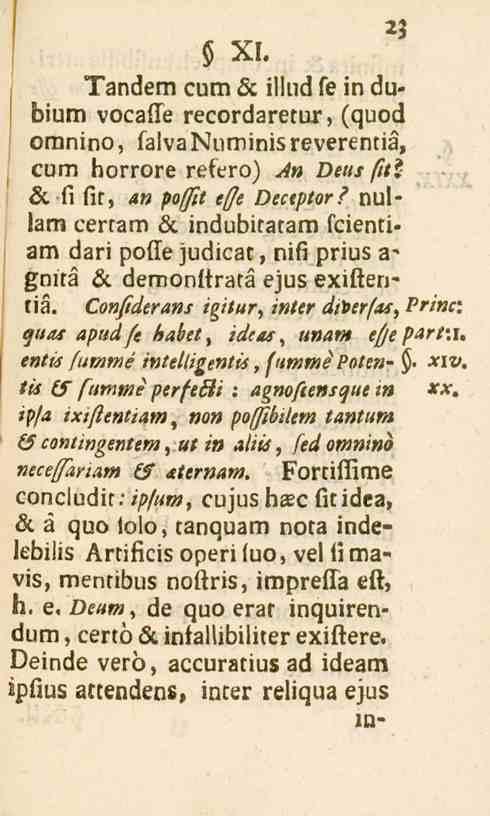 23
§ XI.
Tandem cum & illud ſe in du-
bium vocaſſe recordaretur, (quod
omnino, ſalva Numinis reverentiâ,
cum horrore refero) An Deus ſit?
& ſi ſit, an poſſit eſſe Deceptor? nul-
lam certam & indubitatam ſcienti-
am dari poſſe judicat, niſi prius a-
gnitâ & demonſtratâ ejus exiſten-
tiâ. Conſiderans igitur, inter diverſas, Princ:
quas apud ſe habet, ideas, unam eſſe part:I.
entis ſummé intelligentis, ſummè Poten- §. XIV.
tis & ſummè perfecti : agnoſcensque in XX.
ipſa ixiſtentiam, non poſſibilem tantum
& contingentem, ut in aliis, ſed omninò
neceſſariam & æternam. Fortiſſime
concludit: ipſum, cujus hæc ſit idea,
& â quo ſolo, tanquam nota inde-
lebilis Artificis operi ſuo, vel ſi ma-
vis, mentibus noſtris, impreſſa eſt,
h. e. Deum, de quo erat inquiren-
dum, certò & infallibiliter exiſtere.
Deinde verò, accuratius ad ideam
ipſius attendens, inter reliqua ejus
in-